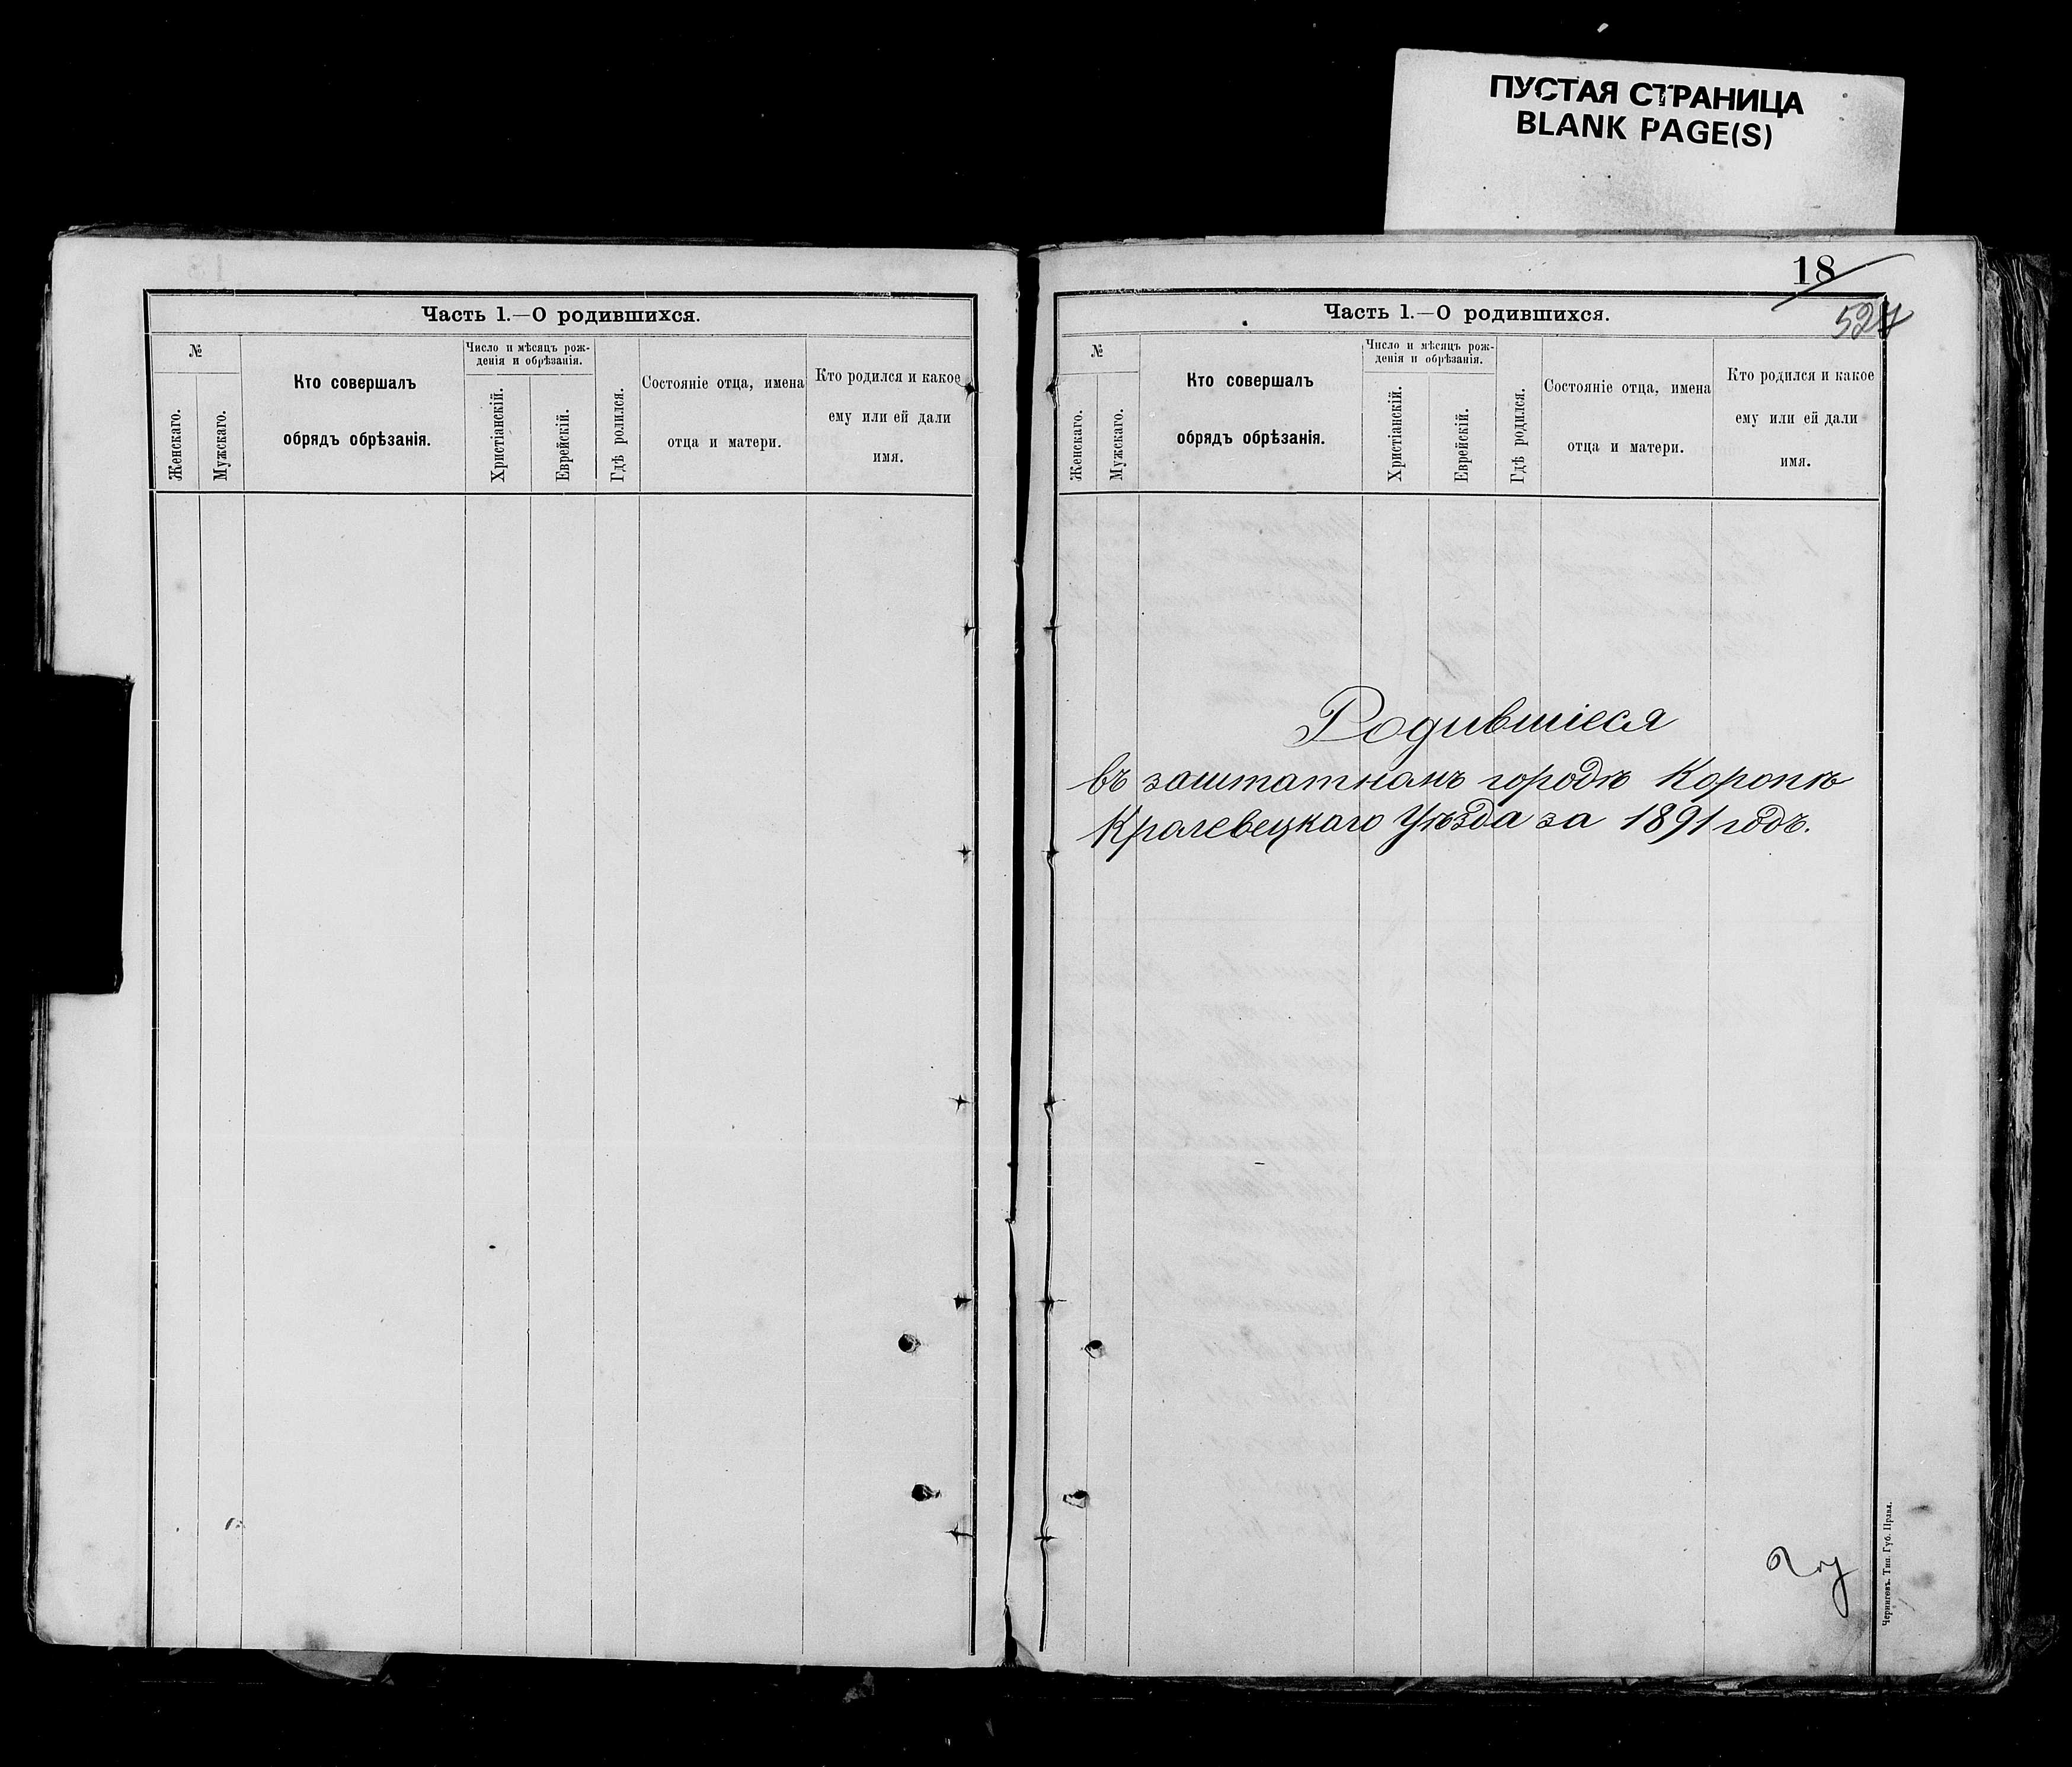 ПУСТАЯ СТРАНИЦА
BLANK PAGE(S)
Часть 1.—О родившихся.
№
Женскаго.
Мужскаго.
Кто совершалъ
обрядъ обрѣзанія.
Число и мѣсяцъ рож-
денія и обрѣзанія.
Христіанскій.
Еврейскій.
Гдѣ родился.
Состояніе отца, имена
отца и матери.
Кто родился и какое
ему или ей дали
имя.
18
Часть 1.—О родившихся.
№
Женскаго.
Мужскаго.
Кто совершалъ
обрядъ обрѣзанія.
Число и мѣсяцъ рож-
денія и обрѣзанія.
Христіанскій.
Еврейскій.
Гдѣ родился.
Состояніе отца, имена
отца и матери.
Кто родился и какое
ему или ей дали
имя.
Родившіеся
въ заштатномъ городѣ Коропѣ
Кролевецкаго Уѣзда за 1891 годъ.
Черниговъ. Тип. Губ. Правл.